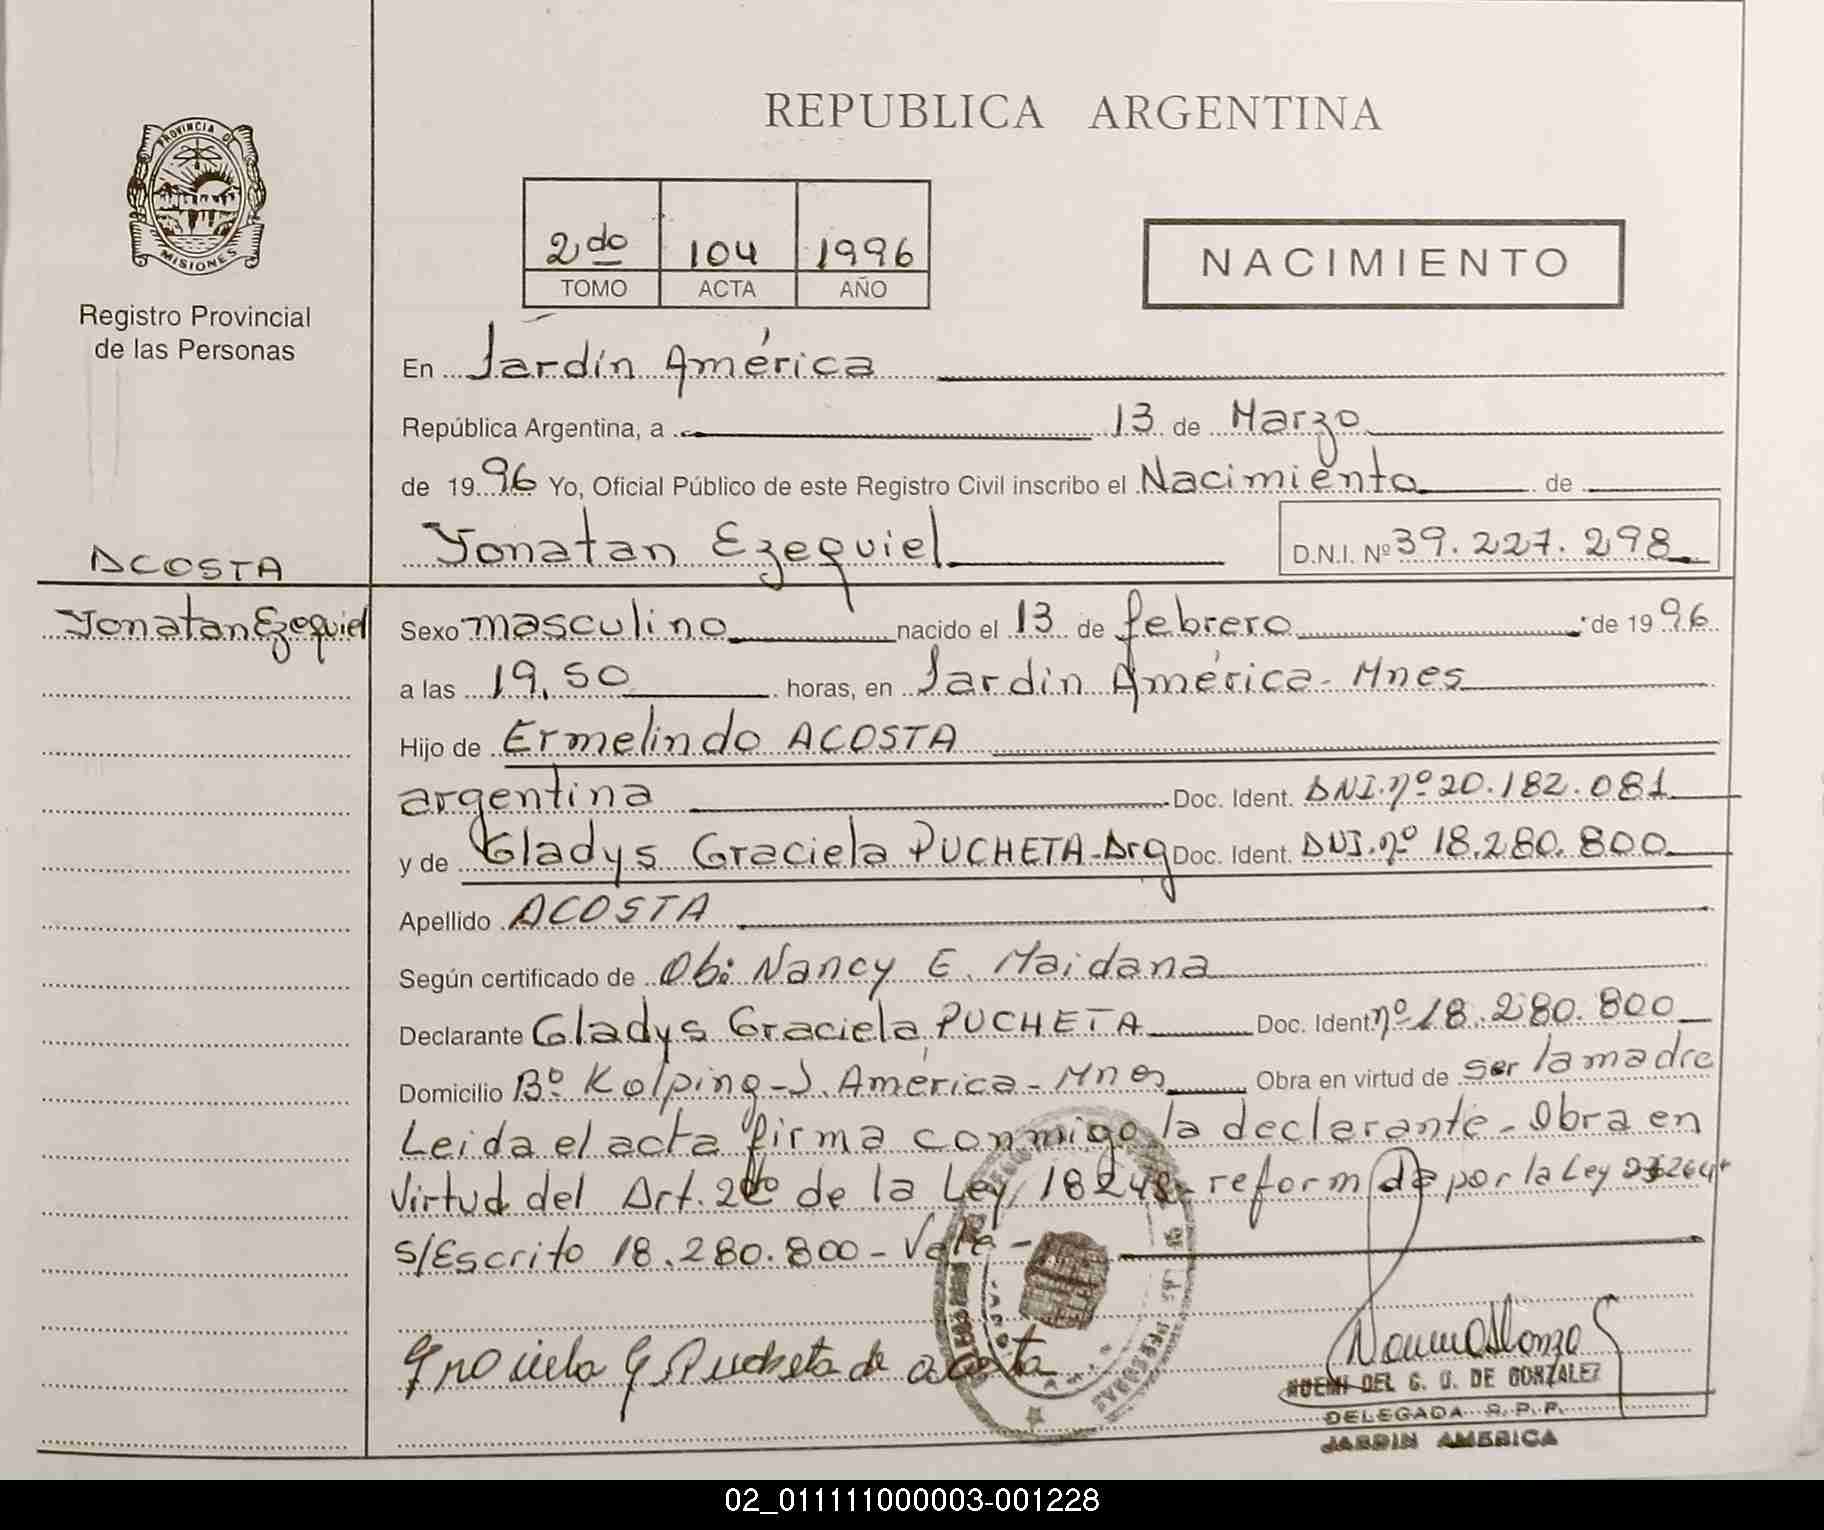 REPUBLICA ARGENTINA
PROVINCIA DE
MISIONES
Registro Provincial
de las Personas
2do 104 1996
TOMO ACTA AÑO
NACIMIENTO
En Jardín América
República Argentina, a 13 de Marzo
de 1996 Yo, Oficial Público de este Registro Civil inscribo el Nacimiento de
Yonatan Ezequiel D.N.I. Nº 39.227.298
ACOSTA
Yonatan Ezequiel
Sexo masculino nacido el 13 de febrero de 1996
a las 19,50 horas, en Jardín América - Mnes
Hijo de Ermelindo ACOSTA
argentina Doc. Ident. DNI.nº 20.182.081
y de Gladys Graciela PUCHETA-Arg Doc. Ident. DNI.nº 18.280.800
Apellido ACOSTA
Según certificado de Ob: Nancy E. Maidana
Declarante Gladys Graciela PUCHETA Doc. Ident nº 18.280.800
Domicilio Bº Kolping-J. América-Mnes Obra en virtud de ser la madre
Leida el acta firma conmigo la declarante - Obra en
Virtud del Art. 2do de la Ley 18248- reformada por la Ley
s/Escrito 18.280.800 - Vale -
G Pucheta de acosta
NOEMI DEL G. O. DE GONZALEZ
DELEGADA R.P.P.
JARDIN AMERICA
02_011111000003-001228